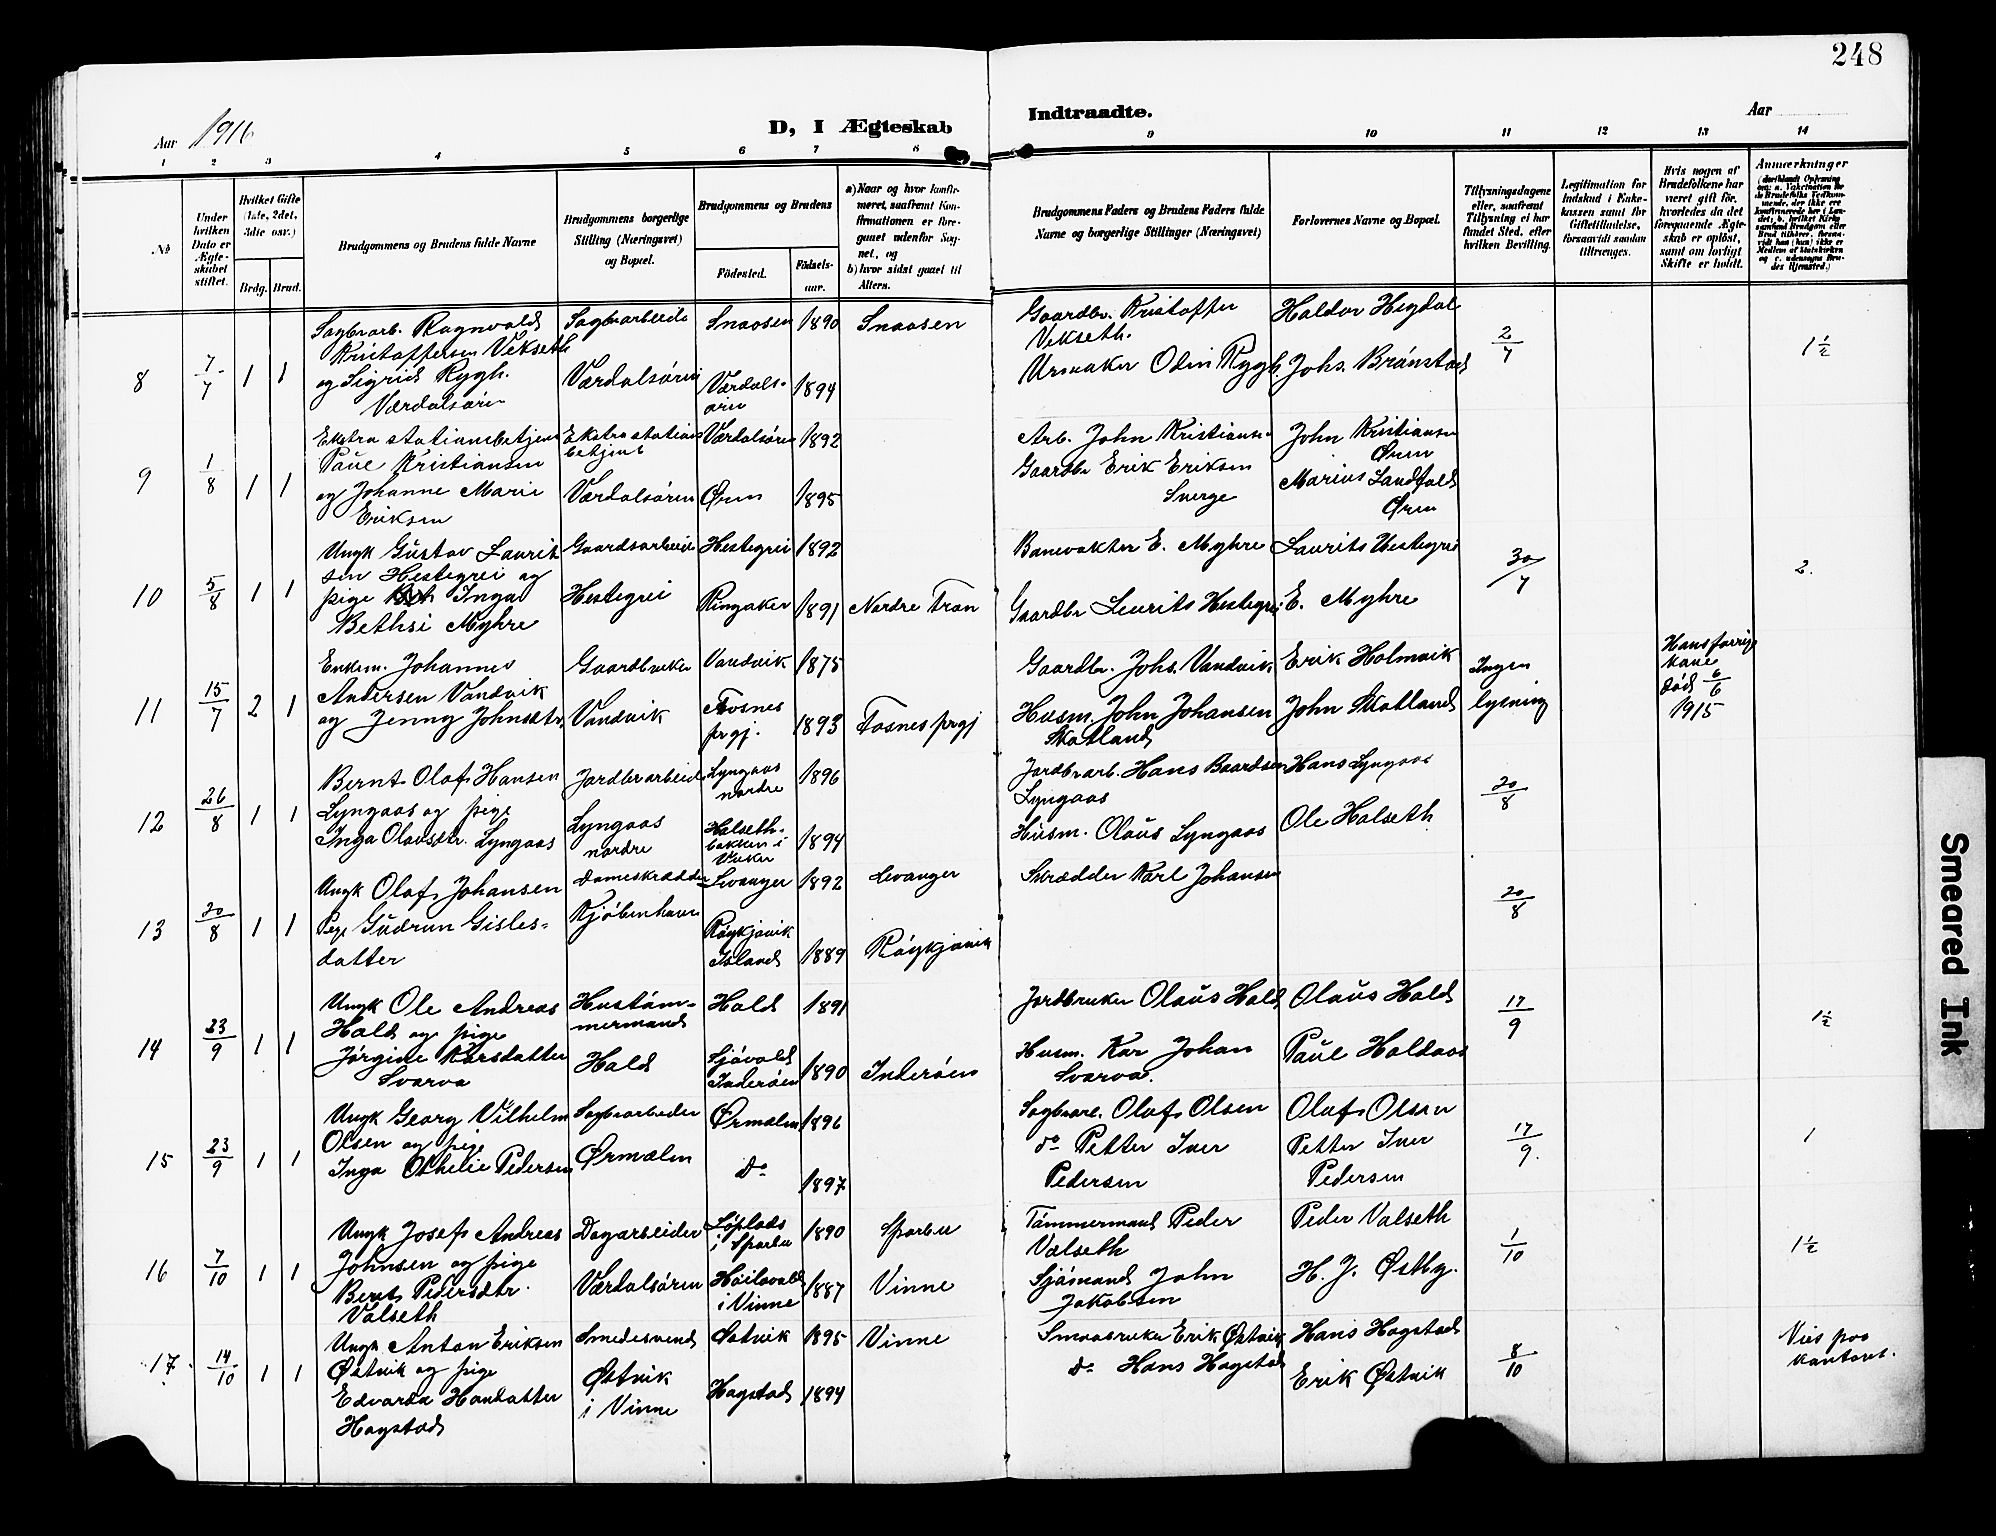 248
Aar 1916
D, I Ægteskab Indtraadte.
Aar
1 2 3 4 5 6 7 8 9 10 11 12 13 14
No
Under hvilken Dato er Ægteskabet stiftet.
Hvilket Gifte (1ste, 2det, 3die osv.)
Brdg. Brud.
Brudgommens og Brudens fulde Navne
Brudgommens borgerlige Stilling (Næringsvei) og Bopæl.
Brudgommens og Brudens
Fødested.
Fødselsaar.
a) Naar og hvor konfirmeret, saafremt Konfirmationen er foregaaet udenfor Sognet, og
b) hvor sidst gaaet til Alters.
Brudgommens Faders og Brudens Faders fulde Navne og borgerlige Stillinger (Næringsvei)
Forlovernes Navne og Bopæl.
Tillysningsdagene eller, saafremt Tillysning ei har fundet Sted, efter hvilken Bevilling.
Legitimation for Indskud i Enkekassen samt for Giftetilladelse, forsaavidt saadan tiltrænges.
Hvis nogen af Brudefolkene har været gift før, hvorledes da det foregaaende Ægteskab er opløst, samt om lovligt Skifte er holdt.
Anmærkninger
8 7/7 1 1
Sagbrarb. Ragnvald
Kristoffersen Vekseth
og Sigrid Rygh.
Værdalsøren
Sagbrarbeide
Værdalsøren
Snaasen 1890 Snaasen
Værdalsøren 1894
Gaardbr. Kristoffer
Vekseth.
Urmaker Odin Rygh.
Haldor Hegdal
Johs. Brønstad
2/7
1 1/2
9 1/8 1 1
Ekstra stationsbetjent
Paul Kristiansen
og Johanne Marie
Eriksen
Ekstra stations
betjent
Værdalsøren
Værdalsøren 1892
Øren 1895
Arb. John Kristiansen
Gaardbr Erik Eriksen
Sverge
John Kristiansen
Øren
Marius Landfald
Øren
10 5/8 1 1
Ungk Gustav Laurit
sen Hestegrei og
pige Inga
Bethsi Myhre
Gaardsarbeide
Hestegrei
Hestegrei 1892
Ringsaker 1891 Nordre Tran
Banevokter E. Myhre
Gaardbr Laurits Hestegrei
Laurits Hestegrei
E. Myhre
30/7
2.
11 15/7 2 1
Enkem. Johannes
Andersen Vandvik
og Jenny Johnsdtr.
Gaardbruker
Vandvik
Vandvik 1875
Fosnes
prgj. 1893 Fosnes prgj
Gaardbr. Johs. Vandvik
Husm. John Johansen
Skatland
Erik Holmvik
John Skatland
Ingen
lysning
Hans forrige
kone
død 6/6
1915
12 26/8 1 1
Bernt Olaf Hansen
Lyngaas og pige
Inga Olausdtr. Lyngaas
Jordbrarbeid
Lyngaas
nordre
Lyngaas
nordre 1896
Halseth-
bakken i
Vuku 1894
Jordbrarb. Hans Baardsen
Lyngaas
Husm. Olaus Lyngaas
Hans Lyngaas
Ole Halseth
20/8
13 20/8 1 1
Ungk Olaf Johansen
Pige Gudrun Gisles-
datter
Dameskrædder
Kjøbenhavn
Levanger 1892 Levanger
Røykjavik
Island 1889 Røykjavik
Skrædder Karl Johansen
20/8
14 23/9 1 1
Ungk Ole Andreas
Hald og pige
Jørgine Karsdatter
Svarva
Hustøm-
mermand
Hald
Hald 1891
Sjøvold
Inderøen 1890 Inderøen
Jordbruker Olaus Hald
Husm. Kar Johan
Svarva.
Olaus Hald
Paul Haldaas
17/9
1 1/2
15 23/9 1 1
Ungk Georg Vilhelm
Olsen og pige
Inga Othelie Pedersen
Sagbrarbeider
Ørmælen
Ørmælen 1896
Do 1897
Sagbrarb. Olaf Olsen
do Petter Iver
Pedersen
Olaf Olsen
Petter Iver
Pedersen
17/9
1
16 7/10 1 1
Ungk Josef Andreas
Johnsen og pige
Berit Pedersdtr.
Valseth
Dagarbeider
Værdalsøren
i Sparbu 1890 Sparbu
i Vinne 1887 Vinne
Tømmermand Peder
Valseth
Sjømand John
Jakobsen
Peder Valseth
H. J. Østby.
1/10
1 1/2
17 14/10 1 1
Ungk Anton Eriksen
Østvik og pige
Edvarda Hansdatter
Hagstad
Smedesvend
Østvik
i Vinne
Østvik 1895 Vinne
Hagstad 1894
Smaabruker Erik Østvik
do Hans Hagstad
Hans Hagstad
Erik Østvik
8/10
Vies paa
kontoret.
Smeared Ink